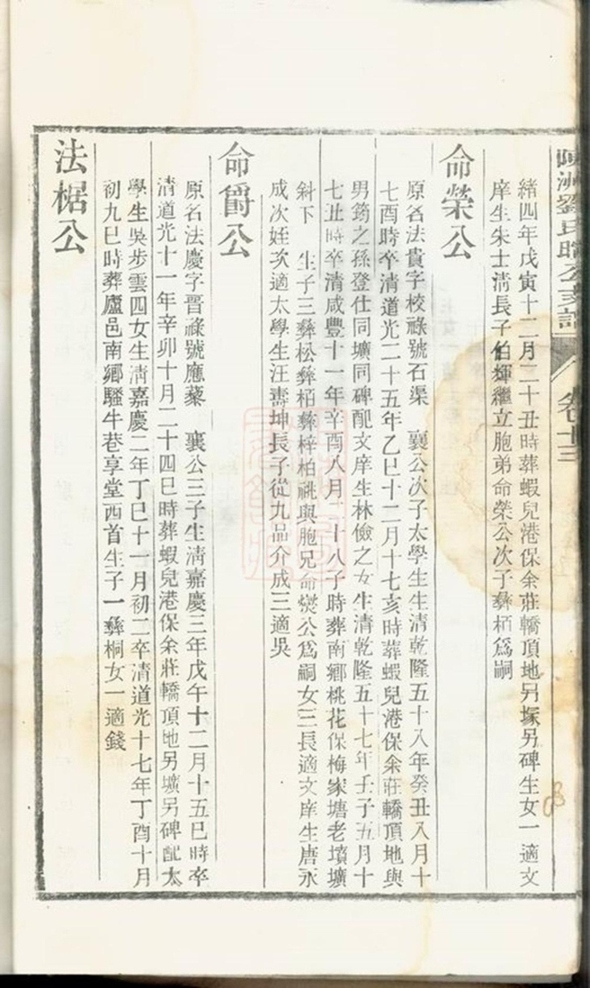 陳洲劉氏聰公支譜 卷十三
緒四年戊寅十二月二十丑時葬蝦兒港保余莊轎頂地另塚另碑生女一適文
庠生朱士淸長子伯輝繼立胞弟命榮公次子彝栢爲嗣
命榮公
原名法貴字校祿號石渠 襄公次子太學生生清乾隆五十八年癸丑八月十
七酉時卒清道光二十五年乙巳十二月十七亥時葬蝦兒港保余莊轎頂地與
男筠之孫登仕同壙同碑配文庠生林儉之女生清乾隆五十七年壬子五月十
七丑時卒清咸豐十一年辛酉八月 十八子時葬南鄉桃花保梅家塘老墳壙
斜下 生子三彝松彝栢彝梓栢祧與胞兄命爕公爲嗣女三長適文庠生唐永
成次姪次適太學生汪壽坤長子從九品介成三適吳
命爵公
原名法慶字晋祿號應藥 襄公三子生淸嘉慶三年戊午十二月十五巳時卒
清道光十一年辛卯十月二十四巳時葬蝦兒港保余莊轎頂地另壙另碑配太
學生吳步雲四女生淸嘉慶二年丁巳十一月初二卒清道光十七年丁酉十月
初九巳時葬廬邑南鄉騷牛巷享堂西首生子一彝桐女一適錢
法椐公